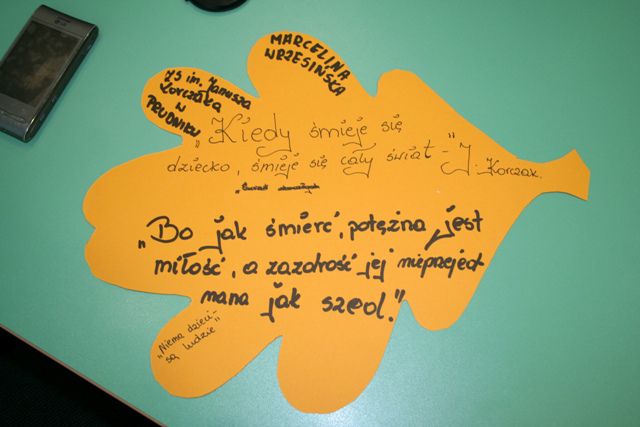 MARCELINA
WRZESIŃSKA
ZS im. Janusza
Korczaka
w
PRUDNIKU
„Kiedy śmieje się
dziecko, śmieje się cały świat" - J. Korczak.
„Bo jak śmierć, potężna jest
miłość, a zazdrość jej nieprzejed
nana jak szeol."
„Niema dzieci -
są ludzie"